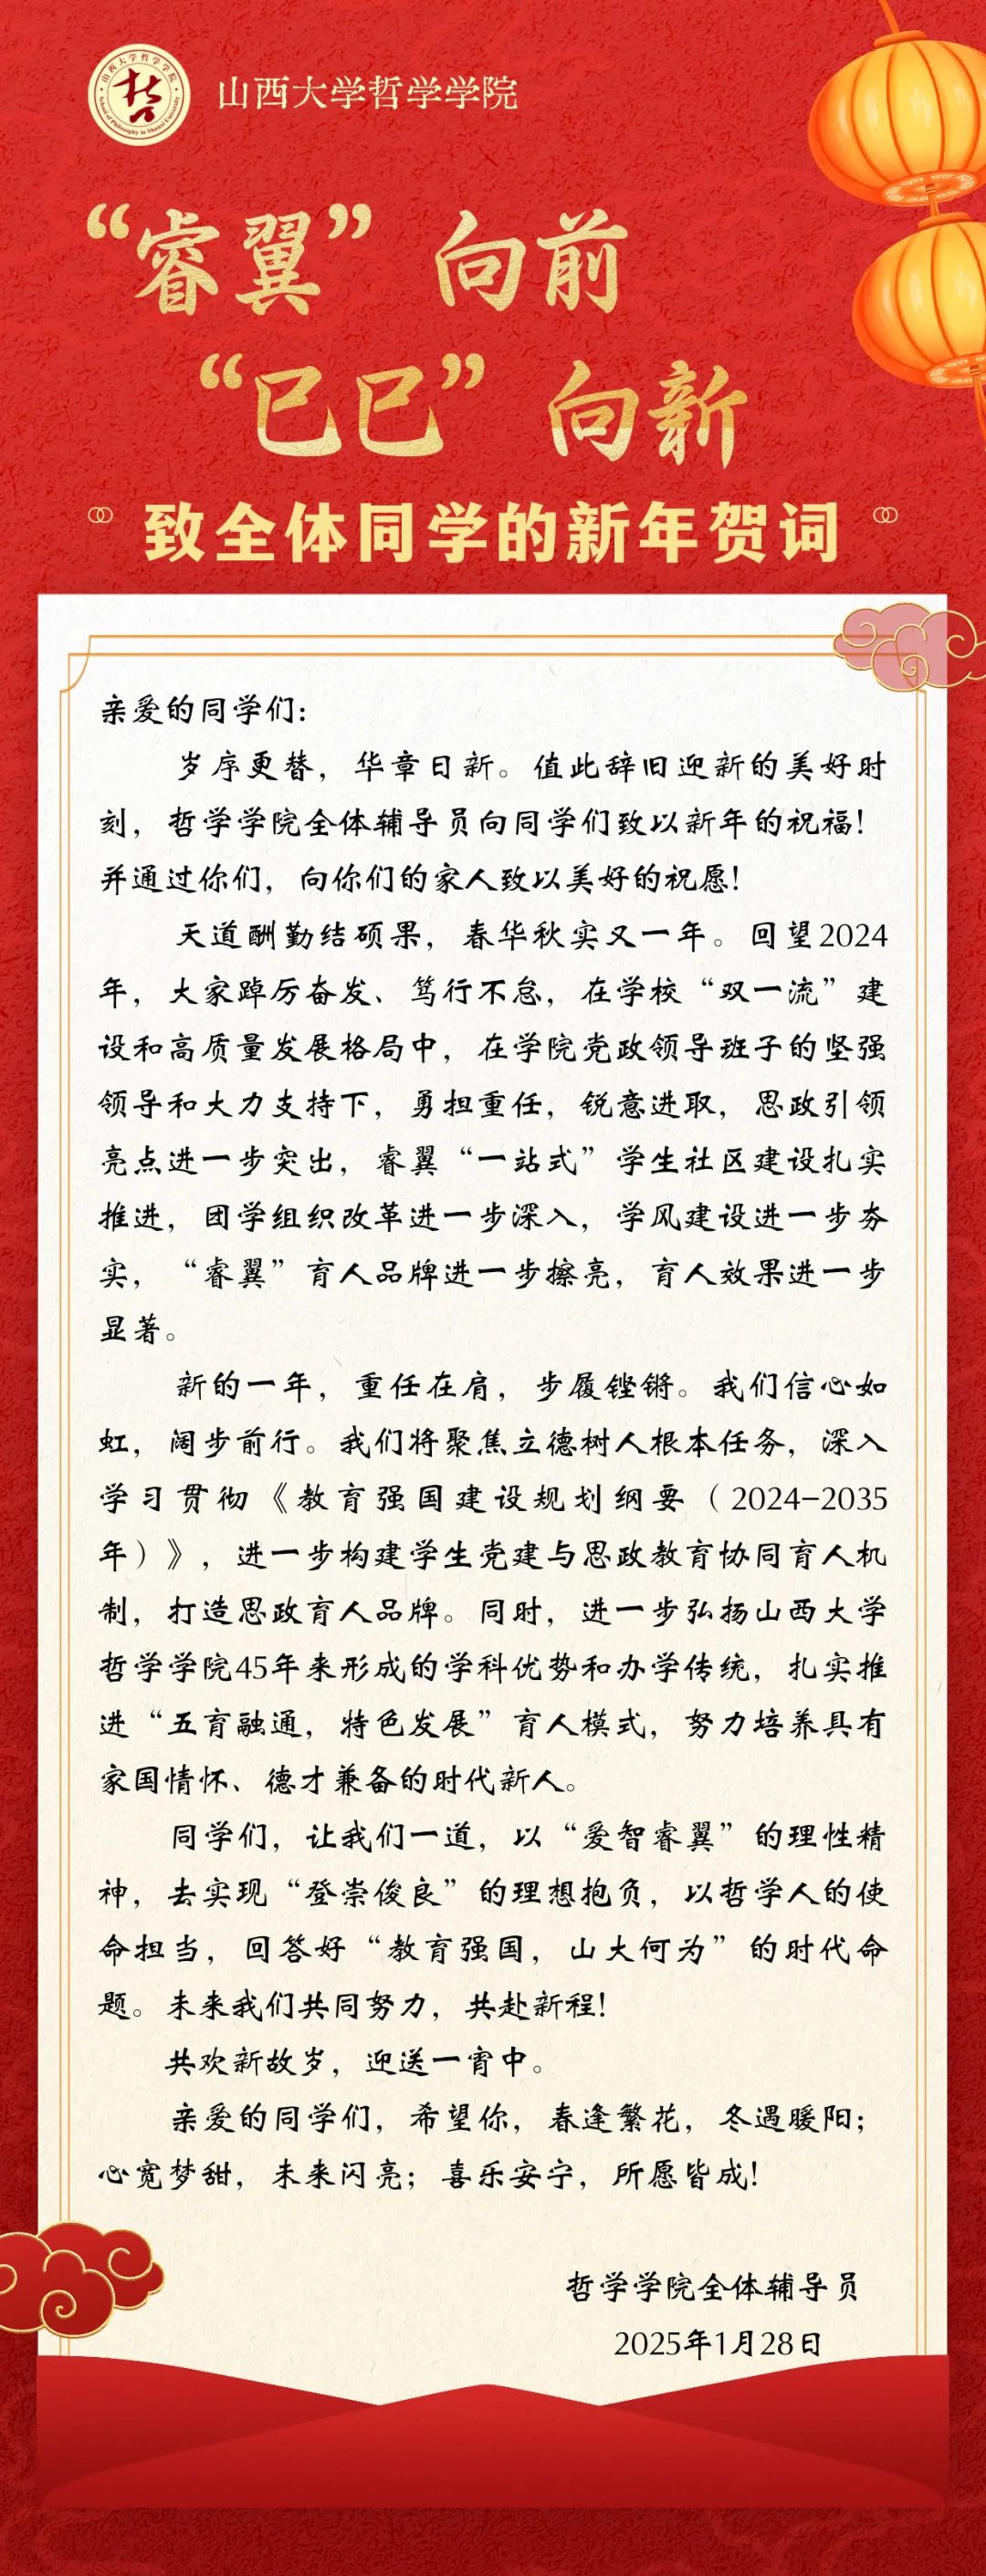 山西大学哲学学院
School of Philosophy in Shanxi University
山西大学哲学学院
“睿翼”向前
“巳巳”向新
致全体同学的新年贺词
亲爱的同学们：
岁序更替，华章日新。值此辞旧迎新的美好时
刻，哲学学院全体辅导员向同学们致以新年的祝福！
并通过你们，向你们的家人致以美好的祝愿！
天道酬勤结硕果，春华秋实又一年。回望2024
年，大家踔厉奋发、笃行不怠，在学校“双一流”建
设和高质量发展格局中，在学院党政领导班子的坚强
领导和大力支持下，勇担重任，锐意进取，思政引领
亮点进一步突出，睿翼“一站式”学生社区建设扎实
推进，团学组织改革进一步深入，学风建设进一步夯
实，“睿翼”育人品牌进一步擦亮，育人效果进一步
显著。
新的一年，重任在肩，步履铿锵。我们信心如
虹，阔步前行。我们将聚焦立德树人根本任务，深入
学习贯彻《教育强国建设规划纲要（2024-2035
年）》，进一步构建学生党建与思政教育协同育人机
制，打造思政育人品牌。同时，进一步弘扬山西大学
哲学学院45年来形成的学科优势和办学传统，扎实推
进“五育融通，特色发展”育人模式，努力培养具有
家国情怀、德才兼备的时代新人。
同学们，让我们一道，以“爱智睿翼”的理性精
神，去实现“登崇俊良”的理想抱负，以哲学人的使
命担当，回答好“教育强国，山大何为”的时代命
题。未来我们共同努力，共赴新程！
共欢新故岁，迎送一宵中。
亲爱的同学们，希望你，春逢繁花，冬遇暖阳；
心宽梦甜，未来闪亮；喜乐安宁，所愿皆成！
哲学学院全体辅导员
2025年1月28日